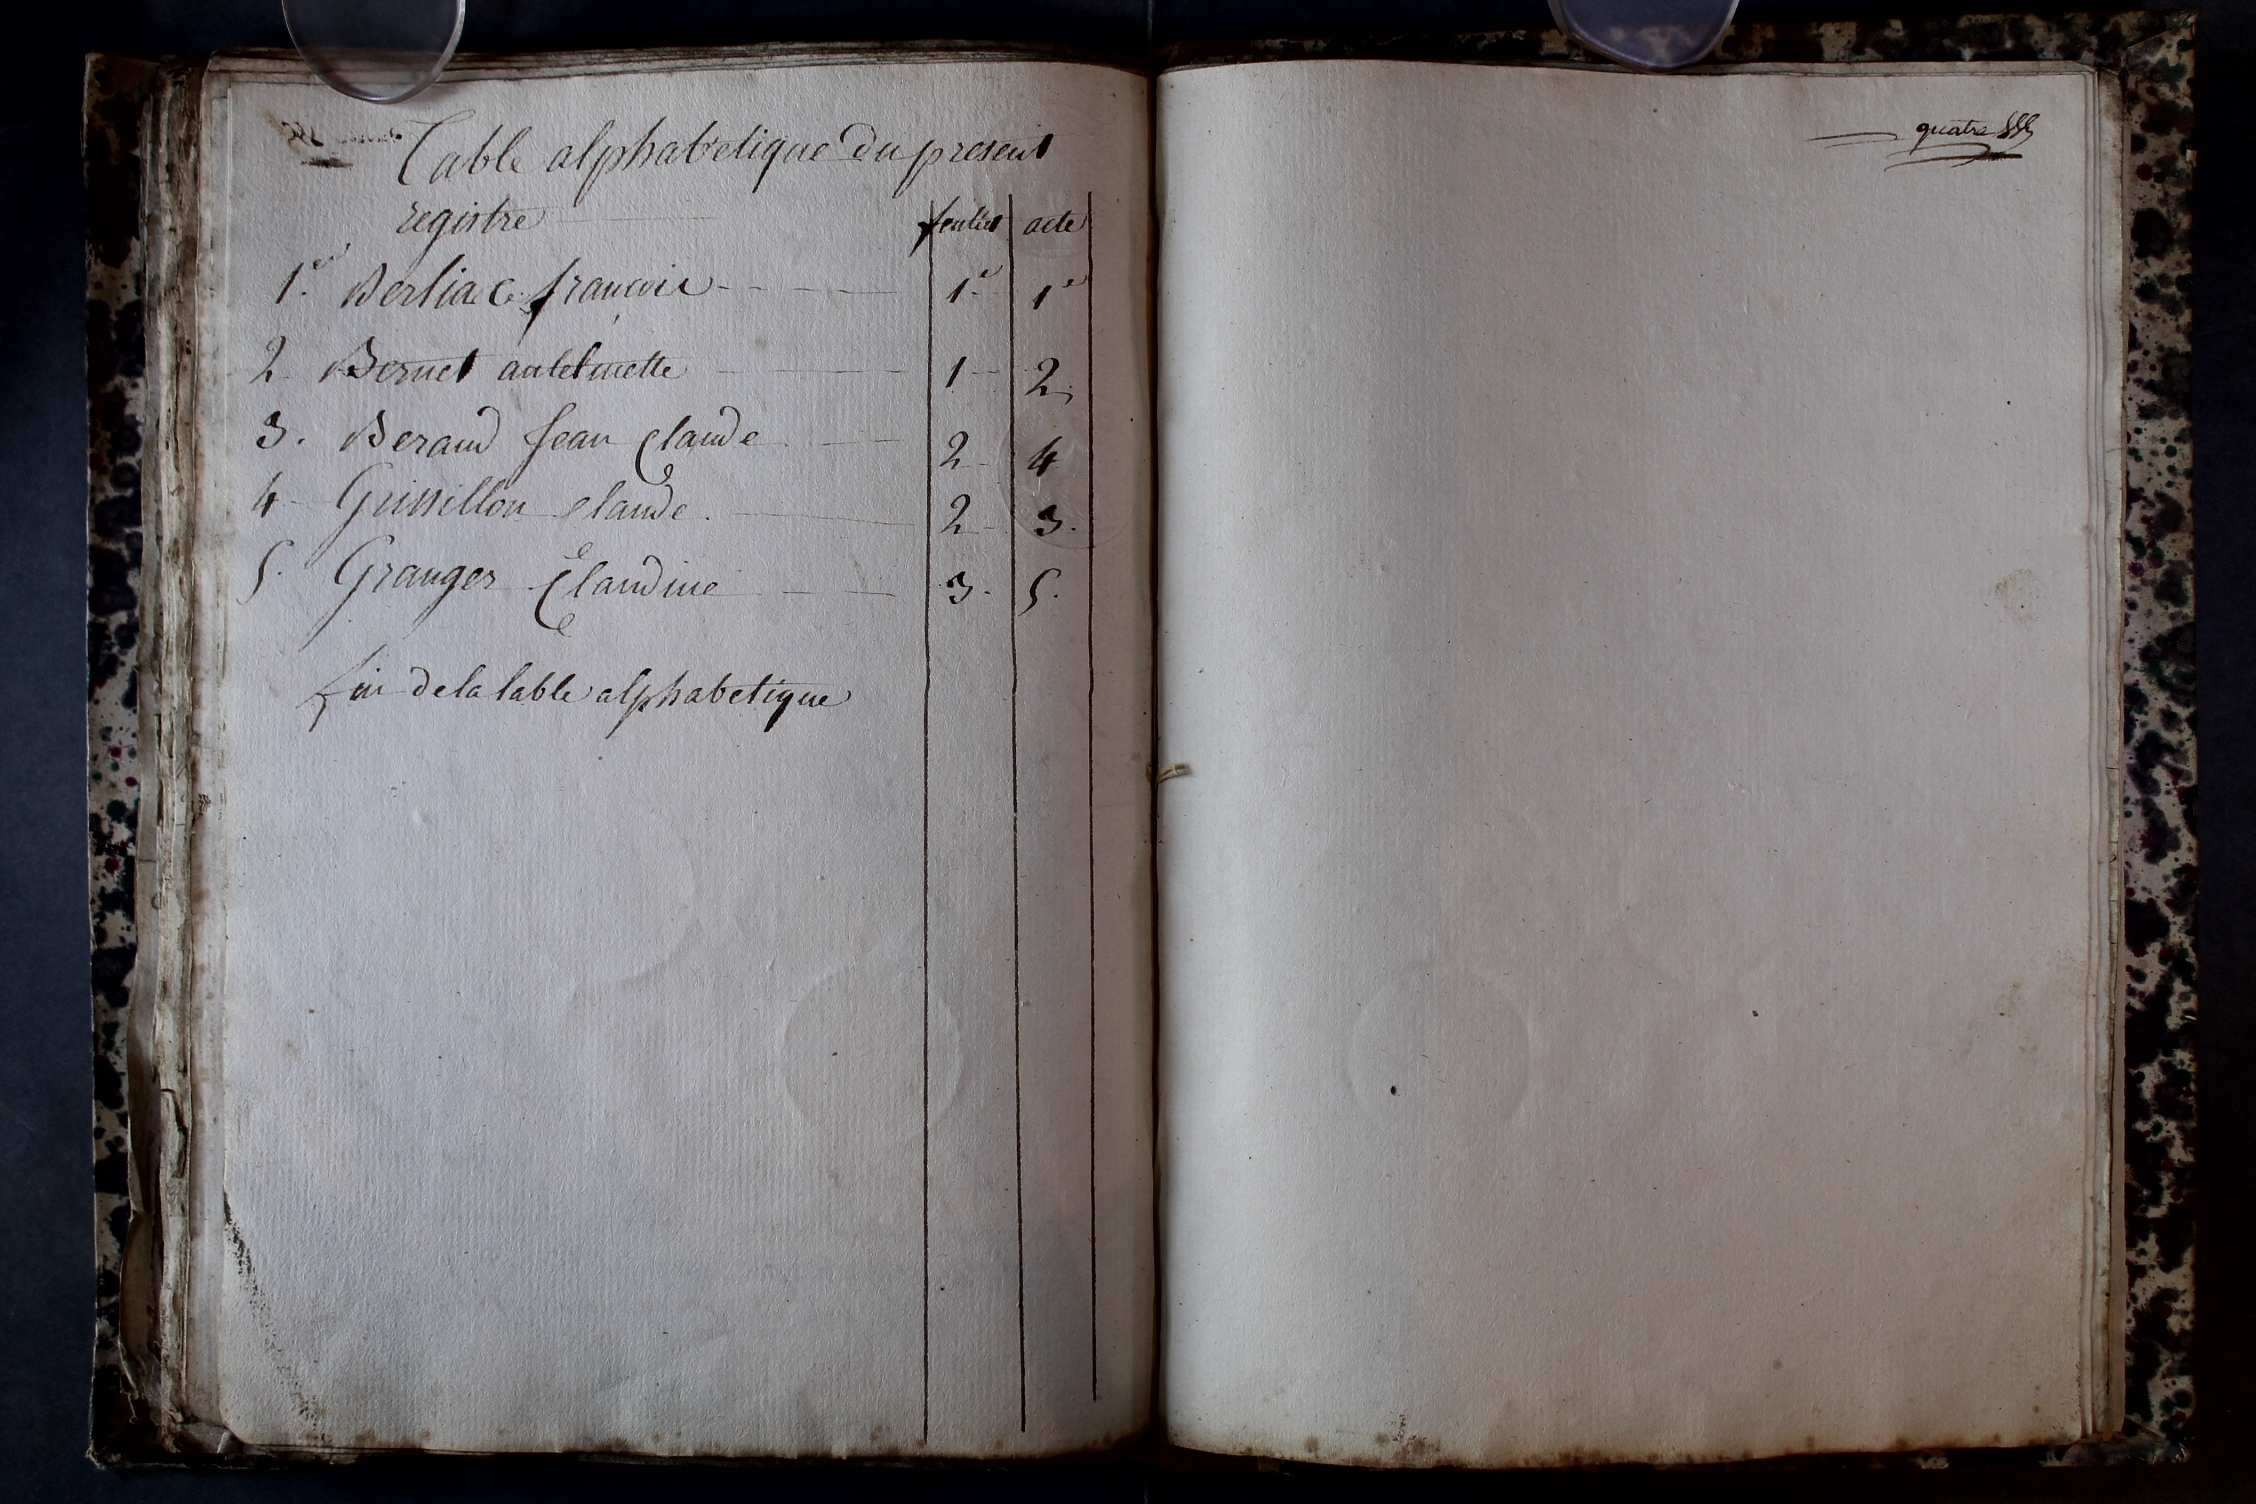 Table alphabetique du present
registre feulies acte
1.er Berliac françois 1.e 1e
2 Bernet antelmette 1 2
3. Beraud Jean Claude 2 4
4 Grissillon claude 2 3.
5. Granger Claudine 3. 5.
fin de la table alphabetique
quatre